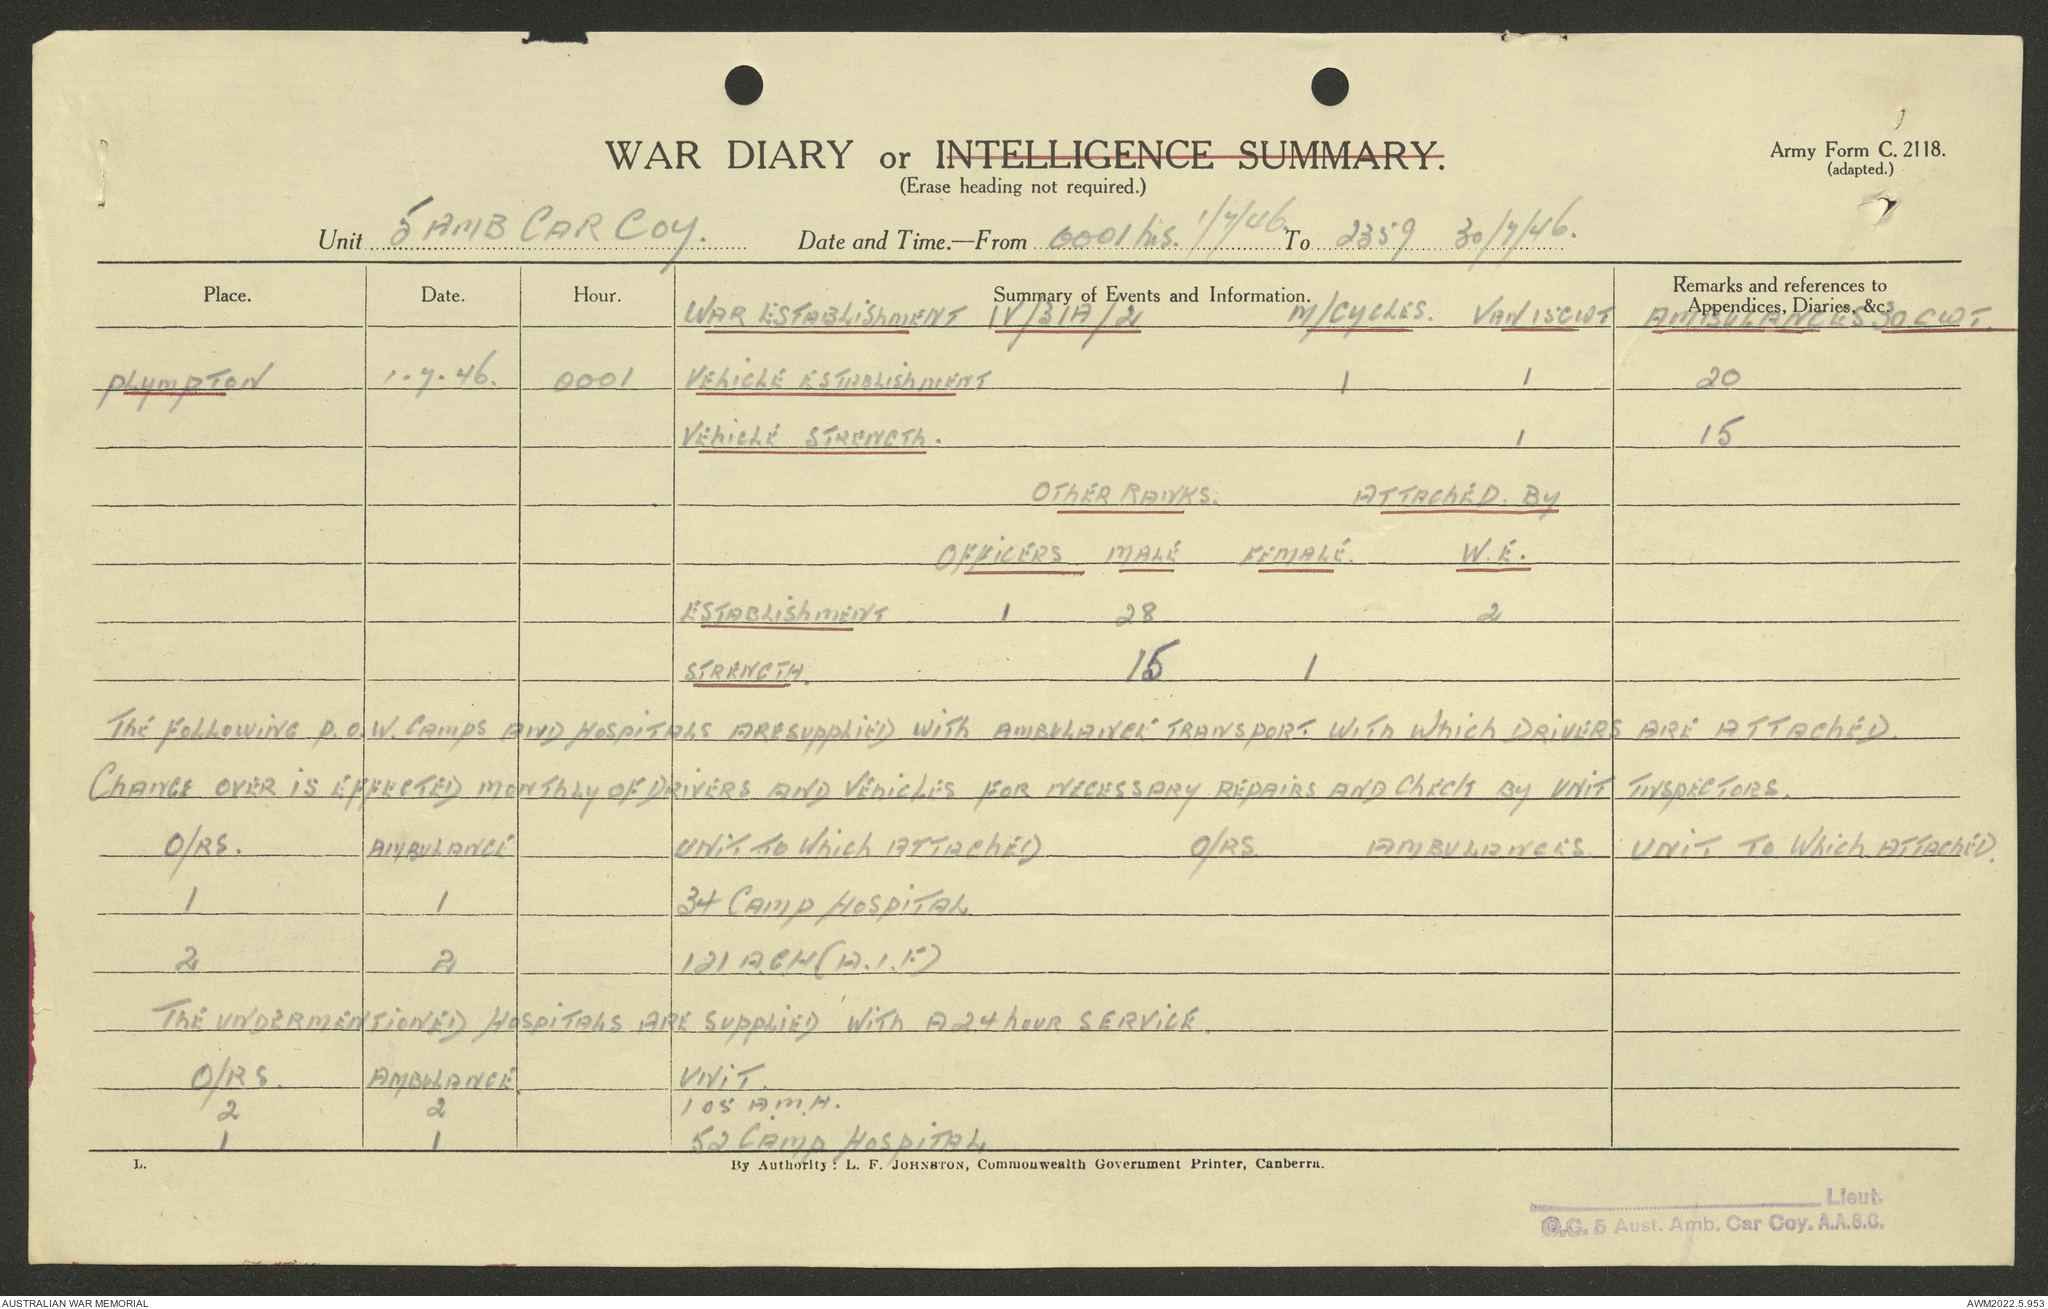 WAR DIARY or INTELLIGENCE SUMMARY.
(Erase heading not required.)
Army Form C. 2118.
(adapted.)
Unit 5 AMB CAR COY. Date and Time.—From 0001 hrs. 1/7/46. To 2359 30/7/46.
Place. Date. Hour. Summary of Events and Information. Remarks and references to
Appendices, Diaries, &c.
WAR ESTABLISHMENT IV/31A/2 M/CYCLES. VAN 15CWT AMBULANCES 30 CWT.
PLYMPTON 1.7.46. 0001 VEHICLE ESTABLISHMENT 1 1 20
VEHICLE STRENGTH. 1 15
OTHER RANKS. ATTACHED. BY
OFFICERS MALE FEMALE. W.E.
ESTABLISHMENT 1 28 2
STRENGTH. 15 1
THE FOLLOWING P.O.W. CAMPS AND HOSPITALS ARE SUPPLIED WITH AMBULANCE TRANSPORT WITH WHICH DRIVERS ARE ATTACHED.
CHANGE OVER IS EFFECTED MONTHLY OF DRIVERS AND VEHICLES FOR NECESSARY REPAIRS AND CHECK BY UNIT INSPECTORS.
O/RS. AMBULANCE UNIT TO WHICH ATTACHED O/RS AMBULANCES. UNIT TO WHICH ATTACHED.
1 1 34 CAMP HOSPITAL
2 2 121 A.G.H (A.I.F)
THE UNDERMENTIONED HOSPITALS ARE SUPPLIED WITH A 24 HOUR SERVICE.
O/RS. AMBULANCE. UNIT.
2 2 105 A.M.H.
1 1 52 CAMP HOSPITAL
L. By Authority: L. F. JOHNSTON, Commonwealth Government Printer, Canberra.
Lieut.
O.C. 5 Aust. Amb. Car Coy. A.A.S.C.
AUSTRALIAN WAR MEMORIAL AWM2022.5.953